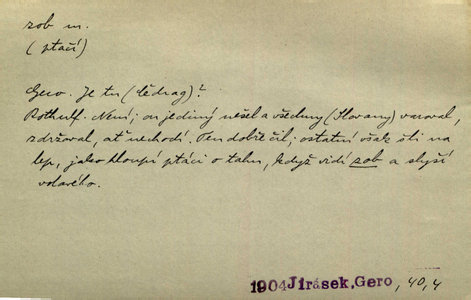 zob m.
(ptačí)
Gero. Je tu (Čědrag)?
Rothulf. Není; on jediný nešel a všechny (Slovany) varoval,
zdržoval, ať nechodí. Ten dobře čil; ostatní však šli na
lep, jako hloupí ptáci o tahu, když vidí zob a slyší
volavého.
1904 Jirásek, Gero, 40,4